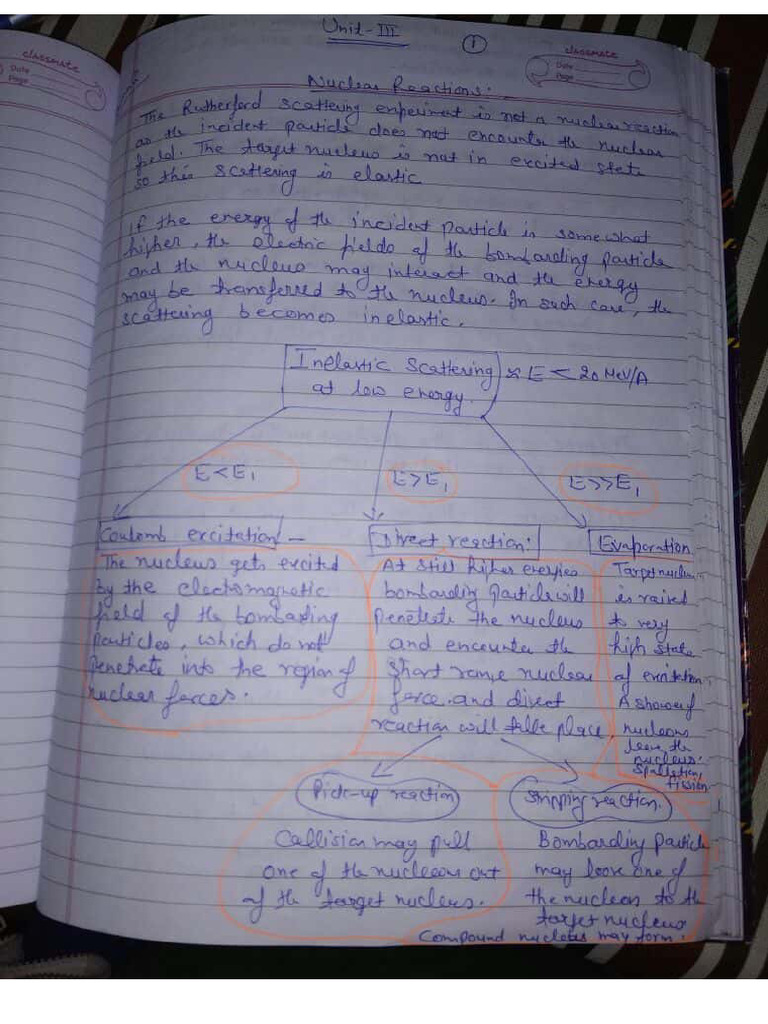 Unit-III
1
classmate
Date
Page
classmate
Date
Page
Nuclear Reactions:
The Rutherford scattering experiment is not a nuclear reaction
as the incident particle does not encounter the nuclear
field. The target nucleus is not in excited state
so this scattering is elastic
If the energy of the incident particle is somewhat
higher, the electric fields of the bombarding particle
and the nucleus may interact and the energy
may be transferred to the nucleus. In such case, the
scattering becomes inelastic.
Inelastic Scattering
at low energy.
E < 20 MeV/A
E < E1
E > E1
E >> E1
Coulomb excitation -
The nucleus gets excited
by the electromagnetic
field of the bombarding
particles, which do not
penetrate into the region of
nuclear forces.
Direct reaction:
At still higher energies
bombarding particle will
penetrate the nucleus
and encounter the
short range nuclear
force. and direct
reaction will take place,
Evaporation
Target nucleus
is raised
to very
high state
of excitation.
A shower of
nucleons
leave the
nucleus.
Spallation,
fission
Pick-up reaction
Collision may pull
one of the nucleons out
of the target nucleus.
Stripping reaction.
Bombarding particle
may loose one of
the nucleon to the
target nucleus
Compound nucleus may form.